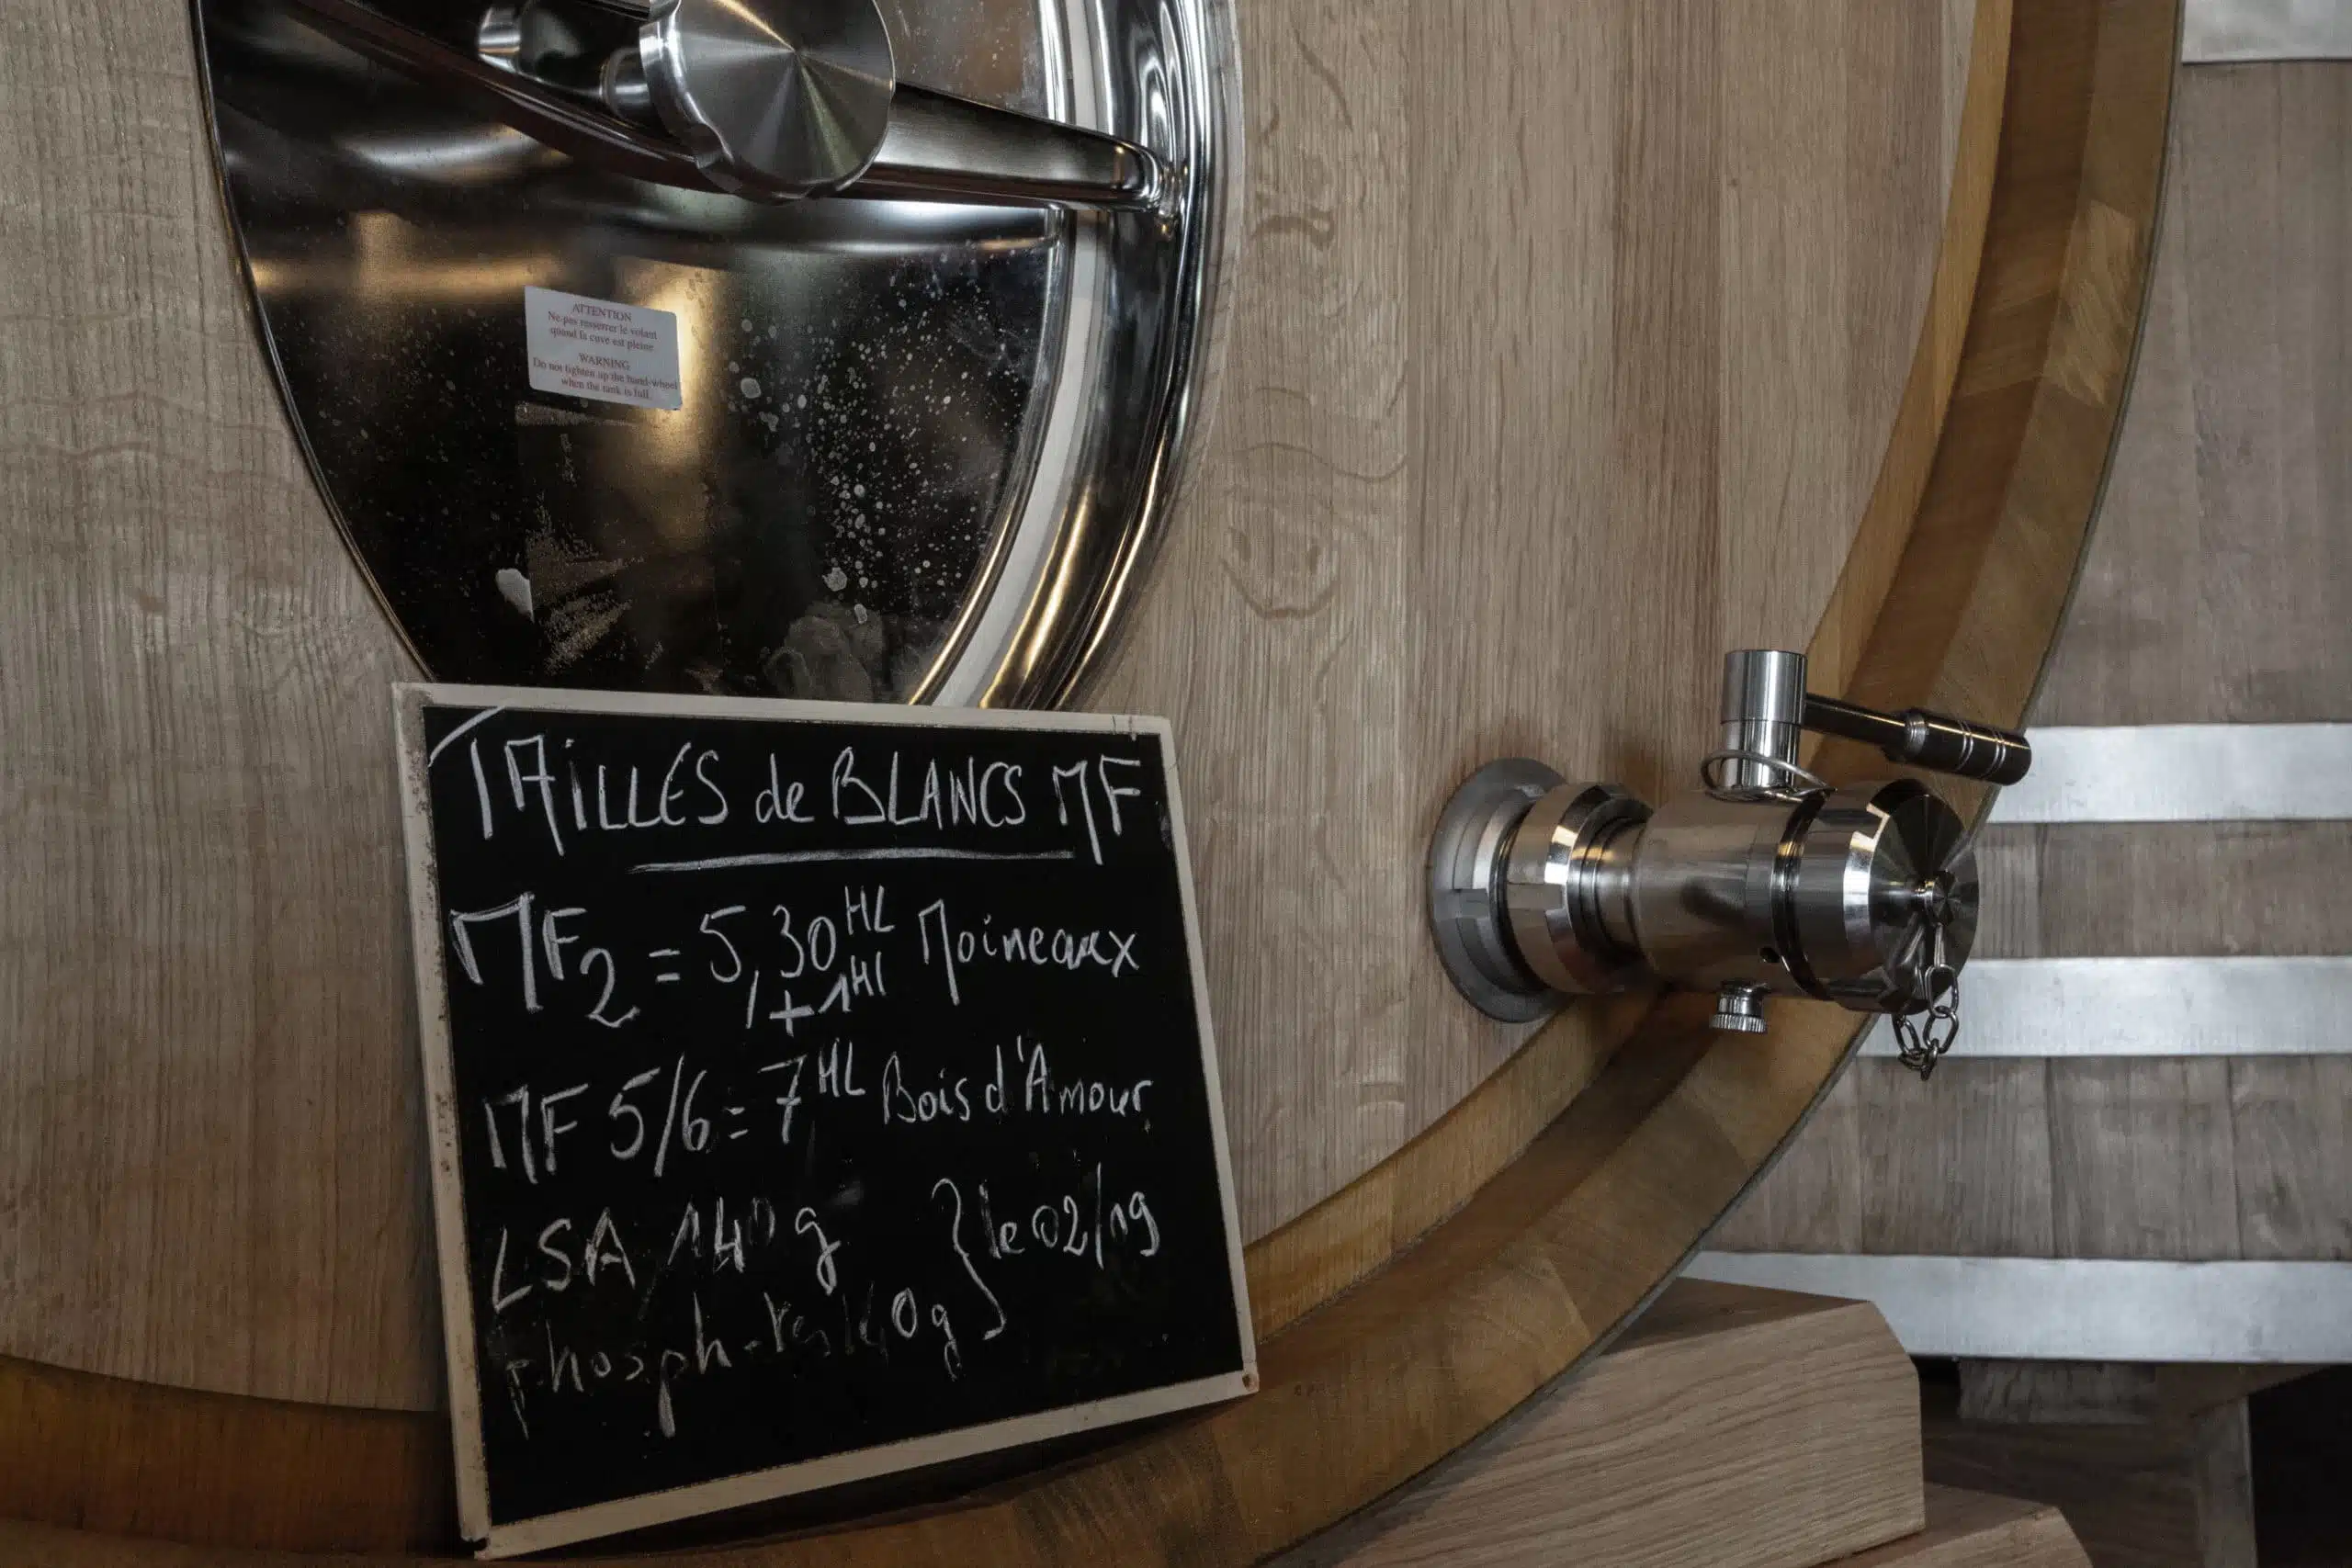 ATTENTION
Ne pas resserrer le volant
quand la cuve est pleine
WARNING
Do not tighten up the hand-wheel
when the tank is full.
TAiLLES de BLANCS MF
MF2 = 5,30 HL Moineaux
+1Hl
MF 5/6 = 7 HL Bois d'Amour
LSA 140 g } le 02/09
0g